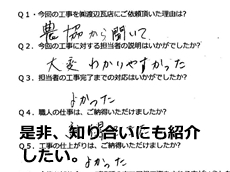 Q1・今回の工事を㈱渡辺瓦店にご依頼頂いた理由は?
農協から聞いて
Q2・今回の工事に対する担当者の説明はいかがでしたか?
大変わかりやすかった
Q3・担当者の工事完了までの対応はいかがでしたか?
よかった
Q4・職人の仕事は、ご納得いただけましたか?
是非、知り合いにも紹介
したい。
Q5・工事の仕上がりは、ご納得いただけましたか?
よかった